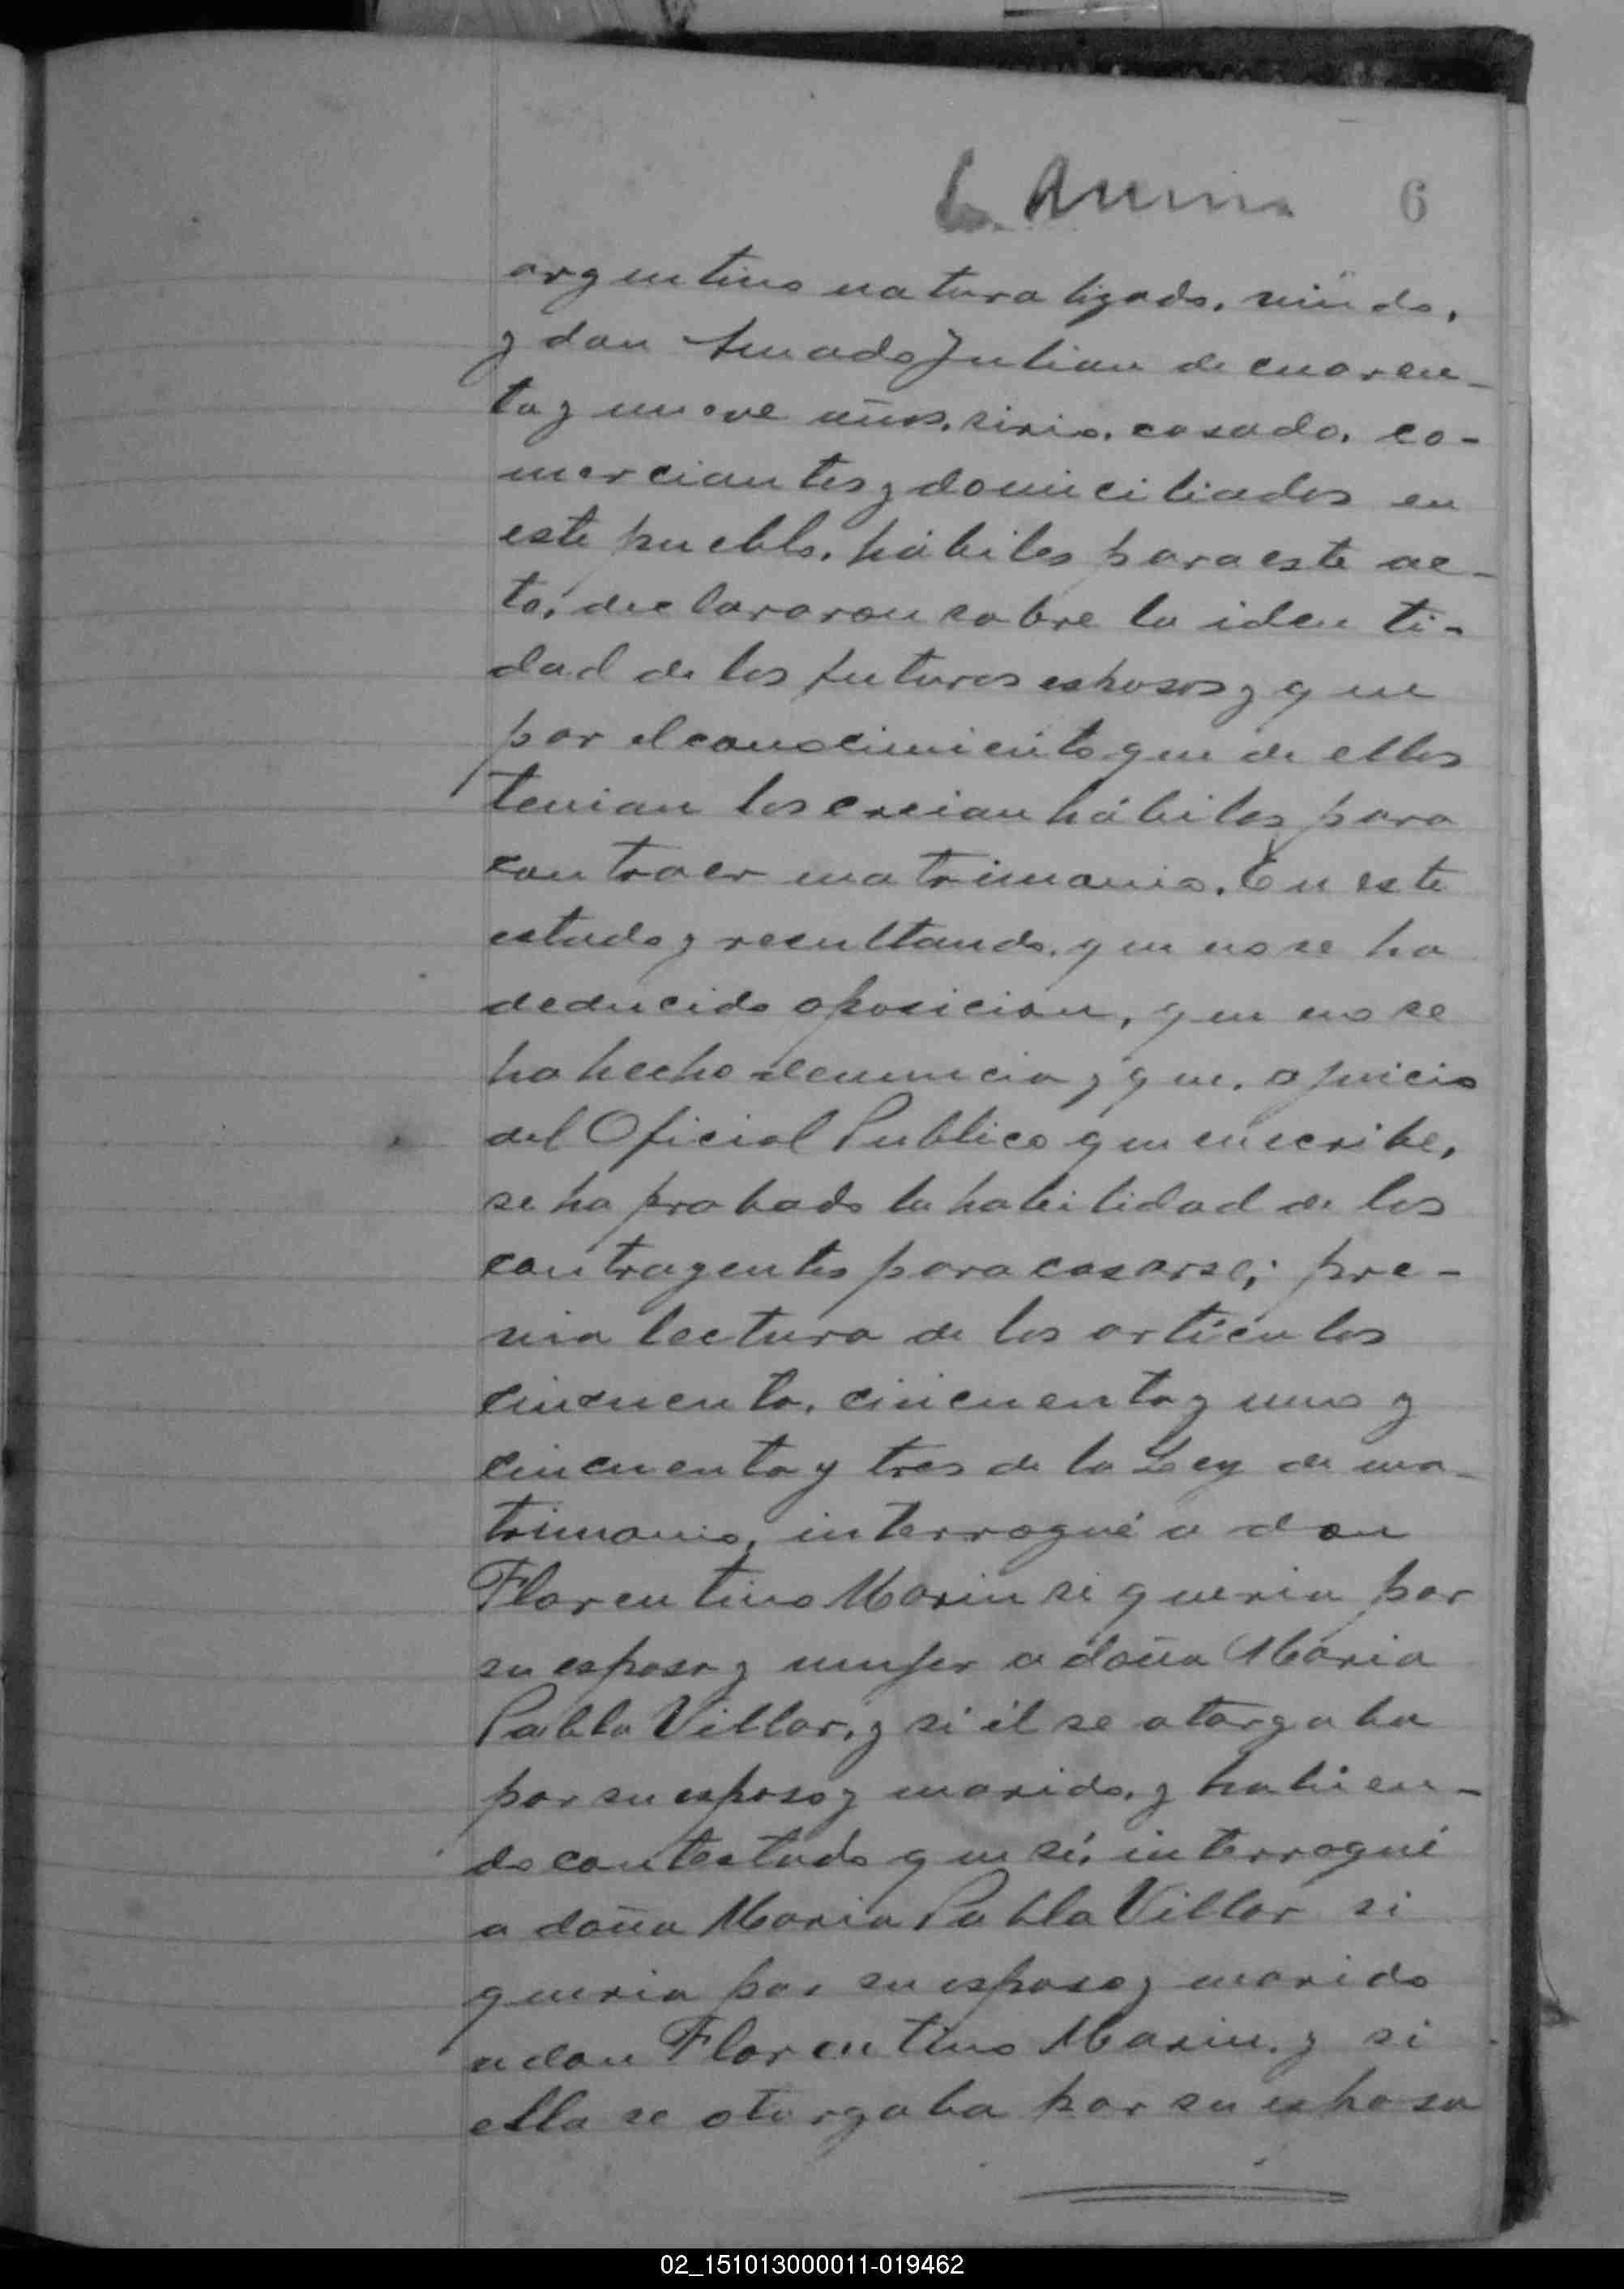 6
argentino naturalizado, viudo,
y don Amado Julian de cuaren-
ta y nueve años, sirio, casado, co-
merciantes y domiciliados en
este pueblo, hábiles para este ac-
to, declararon sobre la identi-
dad de los futuros esposos y que
por el conocimiento que de ellos
tenian los creian hábiles para
contraer matrimonio. En este
estado y resultando, que no se ha
deducido oposicion, que no se
ha hecho denuncia y que, a juicio
del Oficial Publico que suscribe,
se ha probado la habilidad de los
contrayentes para casarse; pre-
via lectura de los articulos
cincuenta, cincuenta y uno y
cincuenta y tres de la Ley de ma-
trimonio, interrogué a don
Florentino Marin si queria por
su esposa y mujer a doña Maria
Pabla Villar, y si él se otorgaba
por su esposo y marido, y habien-
do contestado que sí, interrogué
a doña Maria Pabla Villar si
queria por su esposo y marido
a don Florentino Marin, y si
ella se otorgaba por su esposa
02_151013000011-019462